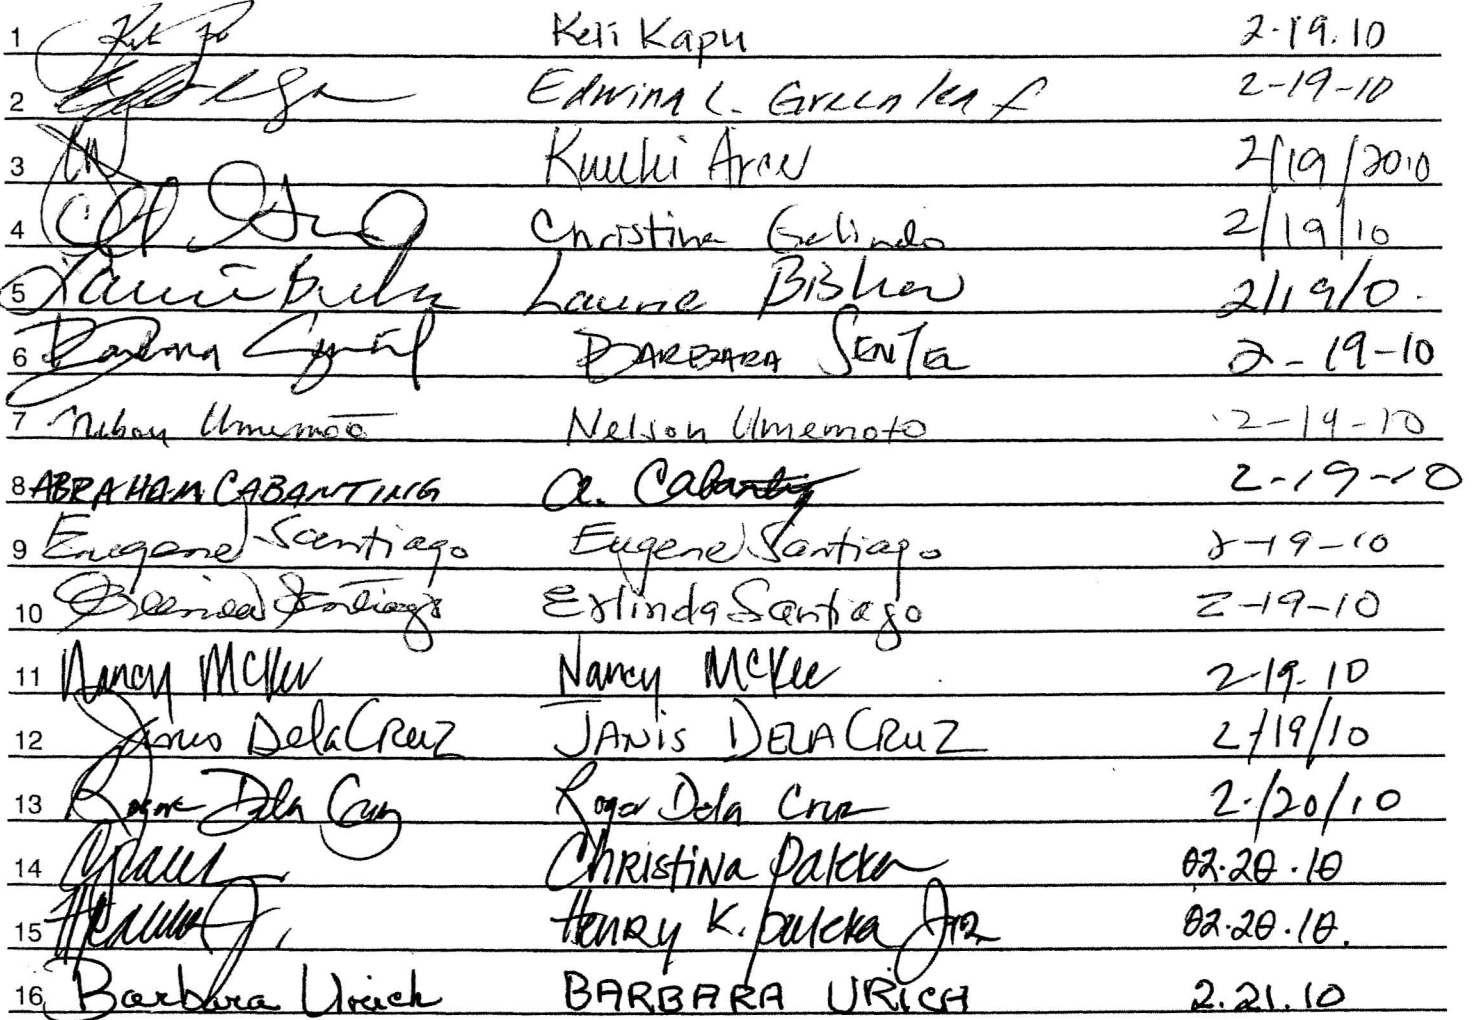 1 Keli Kapu 2.19.10
2 Edwina L. Greenleaf 2-19-10
3 2/19/2010
4 Christina Galindo 2/19/10
5 Laurie Laurie 2/19/0.
6 Barbara BARBARA 2-19-10
7 Nelson Umemoto Nelson Umemoto 2-19-10
8 ABRAHAM CABANTING A. Cabanting 2-19-10
9 Eugene Santiago Eugene Santiago 2-19-10
10 Erlinda Santiago Erlinda Santiago 2-19-10
11 Nancy McKee Nancy McKee 2.19.10
12 Janis DelaCRuZ JANIS DELACRUZ 2/19/10
13 Roger Dela Cruz Roger Dela Cruz 2/20/10
14 CHRISTINA 02.20.10
15 HENRY K. JR 02.20.10.
16 Barbara Urich BARBARA URICH 2.21.10